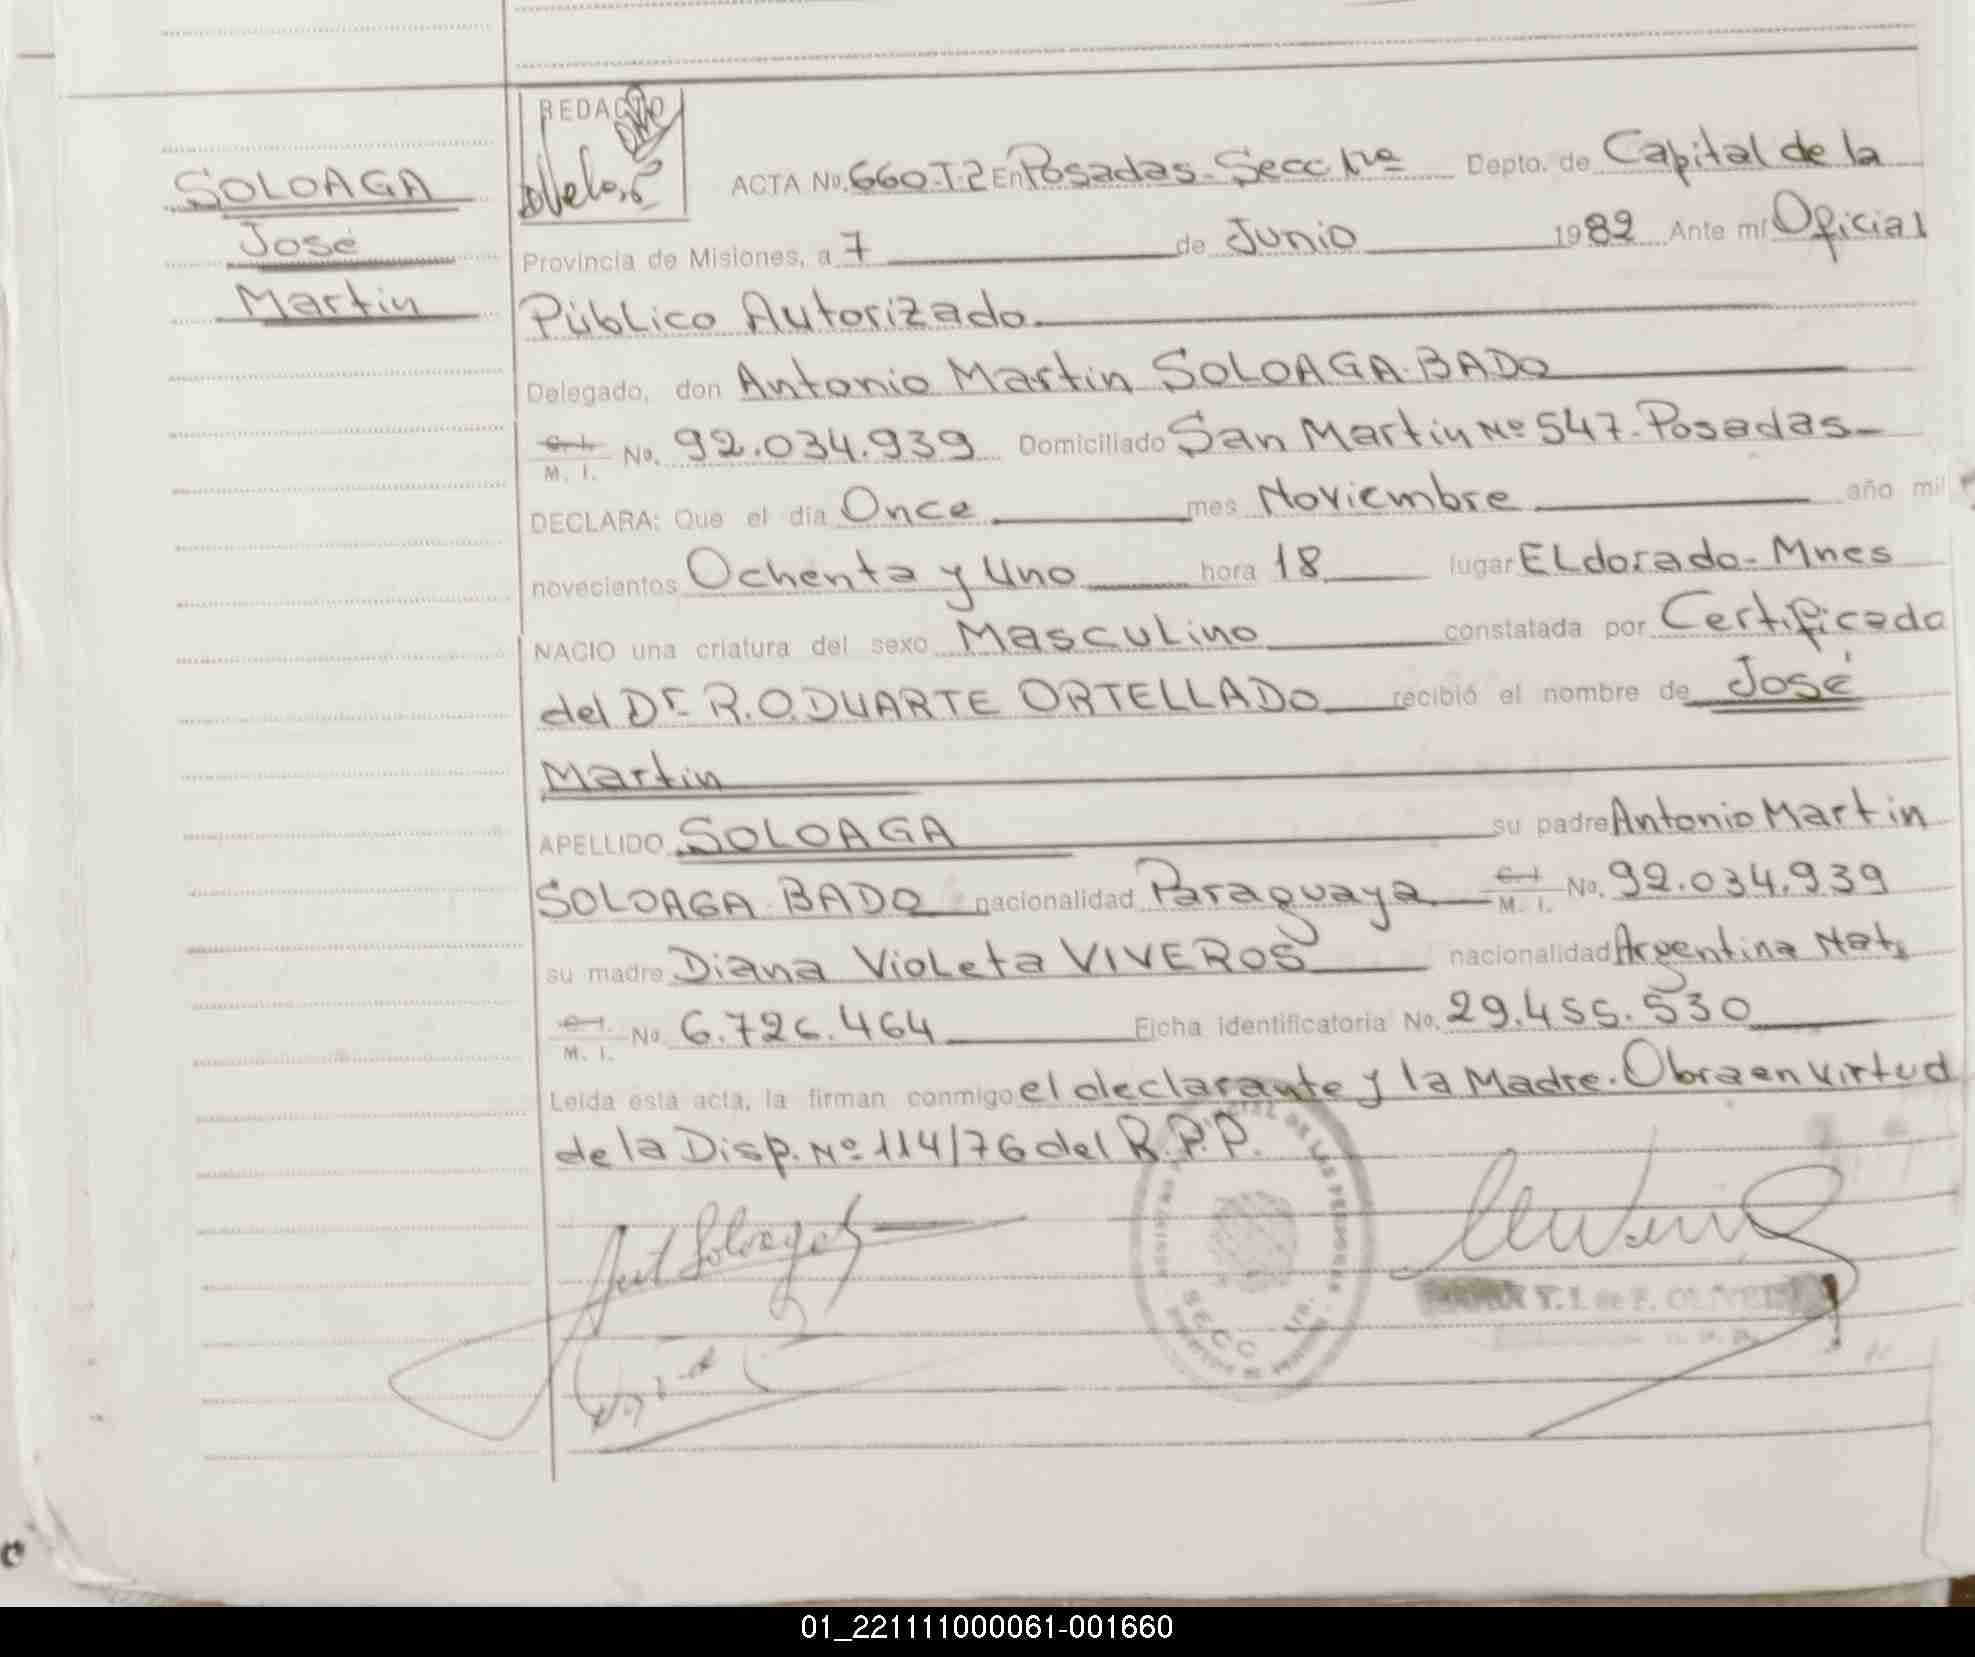 SOLOAGA
José
Martin
REDACTO
ACTA No. 660-T-2 En Posadas-Secc 1ra Depto. de Capital de la
Provincia de Misiones, a 7 de Junio 1982 Ante mí Oficial
Público Autorizado.
Delegado, don Antonio Martin SOLOAGA-BADO
C. I. M. I. No. 92.034.939 Domiciliado San Martin Nº 547-Posadas-
DECLARA: Que el día Once mes Noviembre año mil
novecientos Ochenta y Uno hora 18 lugar ELdorado-Mnes
NACIO una criatura del sexo Masculino constatada por Certificado
del Dr. R.O.DUARTE ORTELLADO recibió el nombre de José
Martin
APELLIDO SOLOAGA su padre Antonio Martin
SOLOAGA BADO nacionalidad Paraguaya C. I. M. I. No. 92.034.939
su madre Diana Violeta VIVEROS nacionalidad Argentina Nat.
C. I. M. I. No. 6.726.464 Ficha identificatoria No. 29.455.530
Leída esta acta, la firman conmigo el declarante y la Madre. Obra en virtud
de la Disp. Nº 114/76 del R.P.P.
DE LAS PERSONAS
SECC 1ra.
01_221111000061-001660